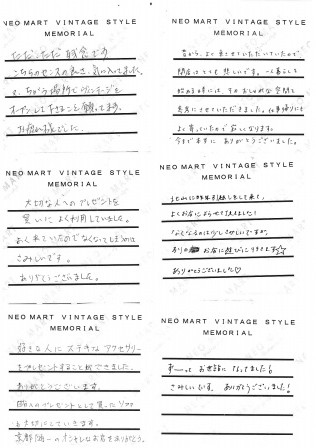 NEO MART VINTAGE STYLE
MEMORIAL
ただただ残念です
こちらのセンスの良さ、気に入ってました。
オープンして下さること願ってます。
お疲れ様でした。
NEO MART VINTAGE STYLE
MEMORIAL
昔から、よく来させていただいていたので
閉店はとても悲しいです。一人暮らしを
始める時には、そのおしゃれな空間を
参考にさせていただきました。仕事帰りにも
よく寄っていたので寂しくなります。
今まで本当に ありがとうございました。
NEO MART VINTAGE STYLE
MEMORIAL
大切な人へのプレゼントを
買いに よく利用していました。
よく来ていたのでなくなってしまうのは
さみしいです。
ありがとうございました。
NEO MART VINTAGE STYLE
MEMORIAL
北山に昨年引越しをして来て、
よくお店によらせて頂きました!
なくなるのは少しさみしいですが、
別の お店に
ありがとうございました♡
NEO MART VINTAGE STYLE
MEMORIAL
好きな人に ステキな アクセサリー
をプレゼントすることができました。
ありがとうございます。
のプレゼントとして買った
も大切にしていきます。
京都 のオシャレなお店をありがとう。
NEO MART VINTAGE STYLE
MEMORIAL
ずーっと お世話に なってました!
さみしいです。ありがとうございました!